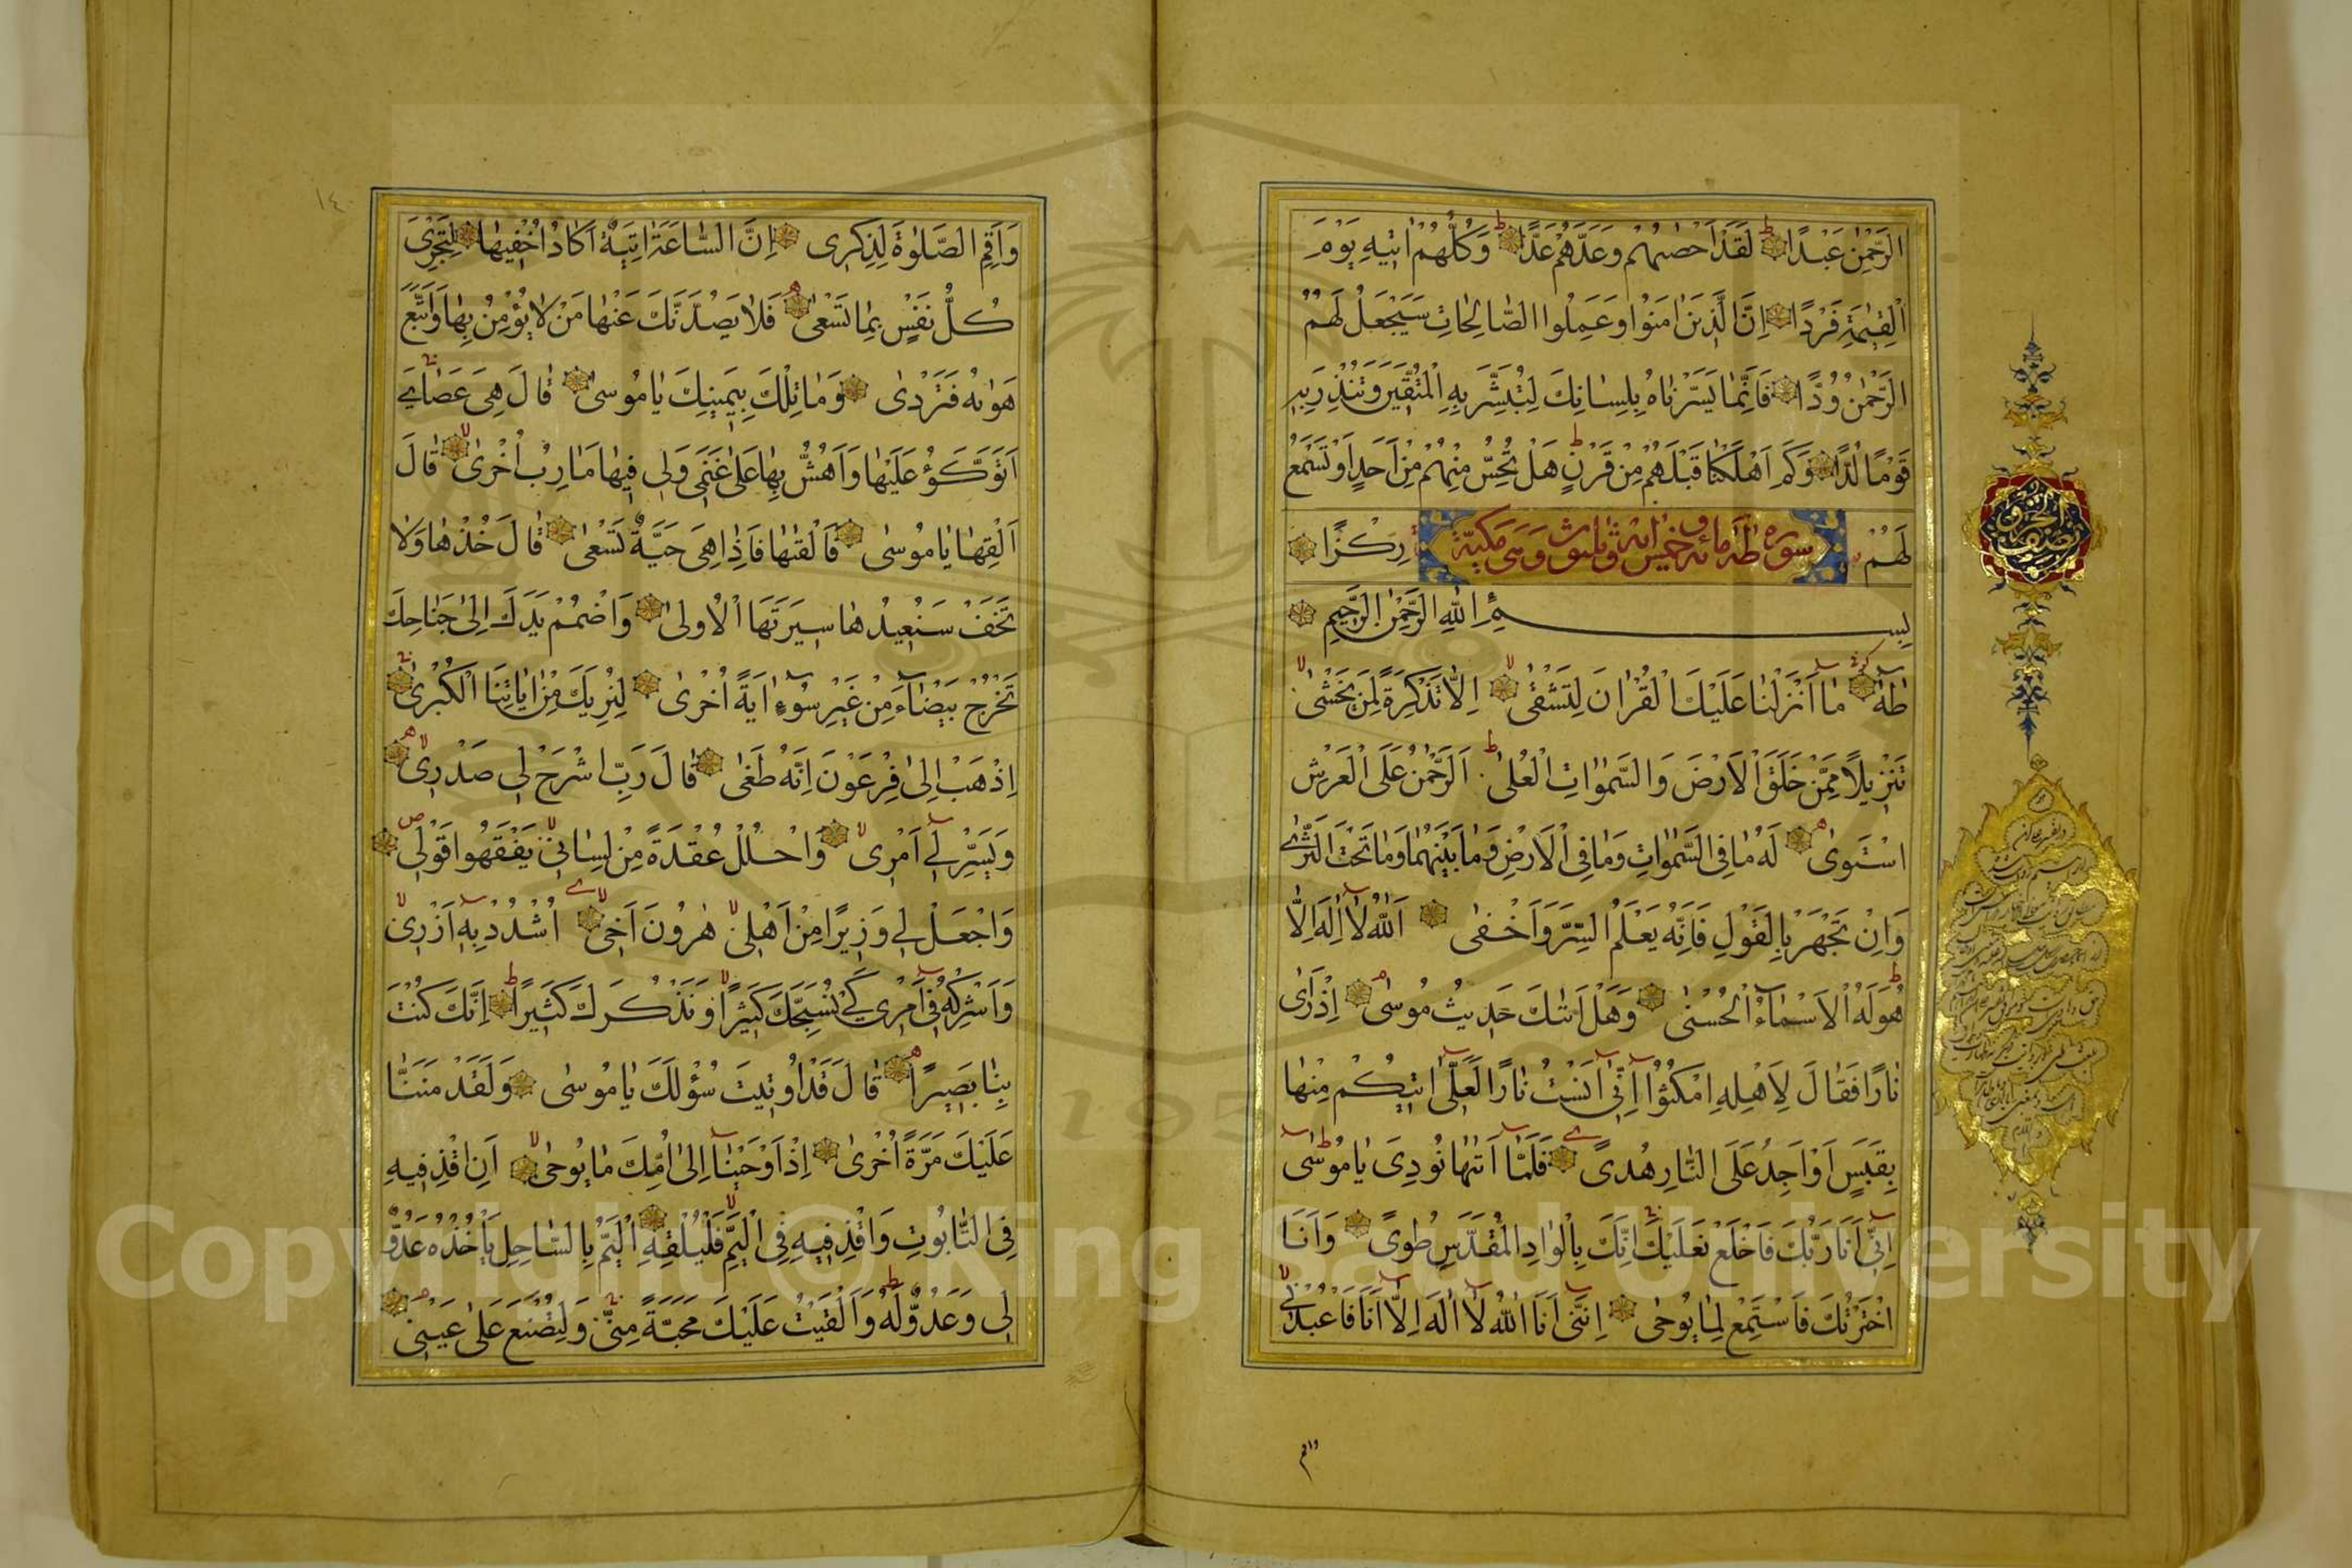 الرَّحْمٰنِ عَبْدًا لَقَدْ اَحْصٰيهُمْ وَعَدَّهُمْ عَدًّا وَكُلُّهُمْ اٰتٖيهِ يَوْمَ
الْقِيٰمَةِ فَرْدًا اِنَّ الَّذٖينَ اٰمَنُوا وَعَمِلُوا الصَّالِحَاتِ سَيَجْعَلُ لَهُمُ
الرَّحْمٰنُ وُدًّا فَاِنَّمَا يَسَّرْنَاهُ بِلِسَانِكَ لِتُبَشِّرَ بِهِ الْمُتَّقٖينَ وَتُنْذِرَ بِهٖ
قَوْمًا لُدًّا وَكَمْ اَهْلَكْنَا قَبْلَهُمْ مِنْ قَرْنٍ هَلْ تُحِسُّ مِنْهُمْ مِنْ اَحَدٍ اَوْ تَسْمَعُ
لَهُمْ رِكْزًا
سورة طه مائة وخمس وثلثون اية وهى مكية
بِسْمِ اللّٰهِ الرَّحْمٰنِ الرَّحٖيمِ
طٰهٰ مَا اَنْزَلْنَا عَلَيْكَ الْقُرْاٰنَ لِتَشْقٰى اِلَّا تَذْكِرَةً لِمَنْ يَخْشٰى
تَنْزٖيلًا مِمَّنْ خَلَقَ الْاَرْضَ وَالسَّمٰوَاتِ الْعُلٰى اَلرَّحْمٰنُ عَلَى الْعَرْشِ
اسْتَوٰى لَهُ مَا فِى السَّمٰوَاتِ وَمَا فِى الْاَرْضِ وَمَا بَيْنَهُمَا وَمَا تَحْتَ الثَّرٰى
وَاِنْ تَجْهَرْ بِالْقَوْلِ فَاِنَّهُ يَعْلَمُ السِّرَّ وَاَخْفٰى اَللّٰهُ لَا اِلٰهَ اِلَّا
هُوَ لَهُ الْاَسْمَاءُ الْحُسْنٰى وَهَلْ اَتٰيكَ حَدٖيثُ مُوسٰى اِذْ رَاٰى
نَارًا فَقَالَ لِاَهْلِهِ امْكُثُوا اِنّٖى اٰنَسْتُ نَارًا لَعَلّٖى اٰتٖيكُمْ مِنْهَا
بِقَبَسٍ اَوْ اَجِدُ عَلَى النَّارِ هُدًى فَلَمَّا اَتٰيهَا نُودِىَ يَا مُوسٰى
اِنّٖى اَنَا رَبُّكَ فَاخْلَعْ نَعْلَيْكَ اِنَّكَ بِالْوَادِ الْمُقَدَّسِ طُوًى وَاَنَا
اخْتَرْتُكَ فَاسْتَمِعْ لِمَا يُوحٰى اِنَّنٖى اَنَا اللّٰهُ لَا اِلٰهَ اِلَّا اَنَا فَاعْبُدْنٖى
وَاقم
نصف الحزب
وَاَقِمِ الصَّلٰوةَ لِذِكْرٖى اِنَّ السَّاعَةَ اٰتِيَةٌ اَكَادُ اُخْفٖيهَا لِتُجْزٰى
كُلُّ نَفْسٍ بِمَا تَسْعٰى فَلَا يَصُدَّنَّكَ عَنْهَا مَنْ لَا يُؤْمِنُ بِهَا وَاتَّبَعَ
هَوٰيهُ فَتَرْدٰى وَمَا تِلْكَ بِيَمٖينِكَ يَا مُوسٰى قَالَ هِىَ عَصَاىَ
اَتَوَكَّؤُ عَلَيْهَا وَاَهُشُّ بِهَا عَلٰى غَنَمٖى وَلِىَ فٖيهَا مَاٰرِبُ اُخْرٰى قَالَ
اَلْقِهَا يَا مُوسٰى فَاَلْقٰيهَا فَاِذَا هِىَ حَيَّةٌ تَسْعٰى قَالَ خُذْهَا وَلَا
تَخَفْ سَنُعٖيدُهَا سٖيرَتَهَا الْاُولٰى وَاضْمُمْ يَدَكَ اِلٰى جَنَاحِكَ
تَخْرُجْ بَيْضَاءَ مِنْ غَيْرِ سُوءٍ اٰيَةً اُخْرٰى لِنُرِيَكَ مِنْ اٰيَاتِنَا الْكُبْرٰى
اِذْهَبْ اِلٰى فِرْعَوْنَ اِنَّهُ طَغٰى قَالَ رَبِّ اشْرَحْ لٖى صَدْرٖى
وَيَسِّرْ لٖى اَمْرٖى وَاحْلُلْ عُقْدَةً مِنْ لِسَانٖى يَفْقَهُوا قَوْلٖى
وَاجْعَلْ لٖى وَزٖيرًا مِنْ اَهْلٖى هٰرُونَ اَخٖى اُشْدُدْ بِهٖ اَزْرٖى
وَاَشْرِكْهُ فٖى اَمْرٖى كَىْ نُسَبِّحَكَ كَثٖيرًا وَنَذْكُرَكَ كَثٖيرًا اِنَّكَ كُنْتَ
بِنَا بَصٖيرًا قَالَ قَدْ اُوتٖيتَ سُؤْلَكَ يَا مُوسٰى وَلَقَدْ مَنَنَّا
عَلَيْكَ مَرَّةً اُخْرٰى اِذْ اَوْحَيْنَا اِلٰى اُمِّكَ مَا يُوحٰى اَنِ اقْذِفٖيهِ
فِى التَّابُوتِ فَاقْذِفٖيهِ فِى الْيَمِّ فَلْيُلْقِهِ الْيَمُّ بِالسَّاحِلِ يَاْخُذْهُ عَدُوٌّ
لٖى وَعَدُوٌّ لَهُ وَاَلْقَيْتُ عَلَيْكَ مَحَبَّةً مِنّٖى وَلِتُصْنَعَ عَلٰى عَيْنٖى
١٤٠
Copyright © King Saud University
195